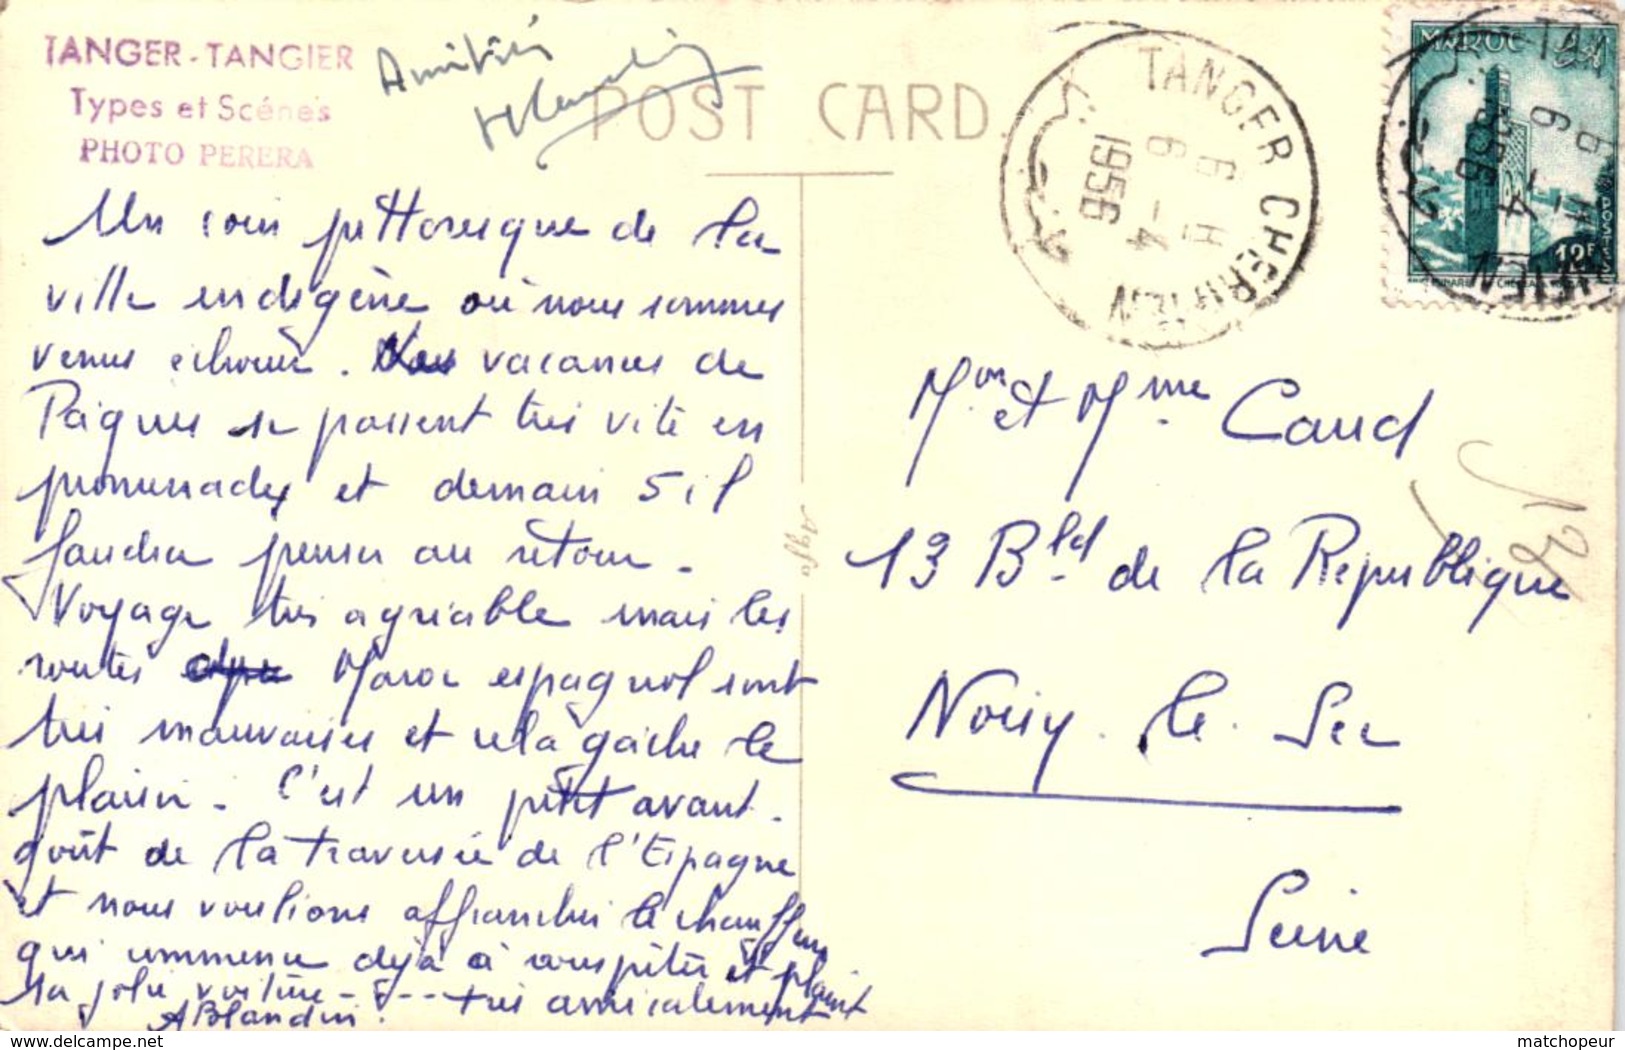 TANGER - TANGIER
Types et Scénes
PHOTO PERERA
Amitiés
POST CARD
TANGER CHERIFIEN
6 H
6 - 4
1956
MAROC
POSTES
12F
Un coin pittoresque de la
ville indigène où nous sommes
venus échouer. Nos vacances de
Pâques se passent très vite en
promenades et demain s'il
faudra penser au retour.
Voyage très agréable mais les
routes Maroc espagnol sont
très mauvaises et cela gâche le
plaisir. C'est un petit avant-
goût de la traversée de l'Espagne
et nous voulions affranchir le chauffeur
qui commence déjà à rouspéter et plaint
sa jolie voiture - très amicalement
ABlandin
Agfa
Mon et Mme Caud
13 Bld de la République
Noisy-le-Sec
Seine
www.delcampe.net
matchopeur